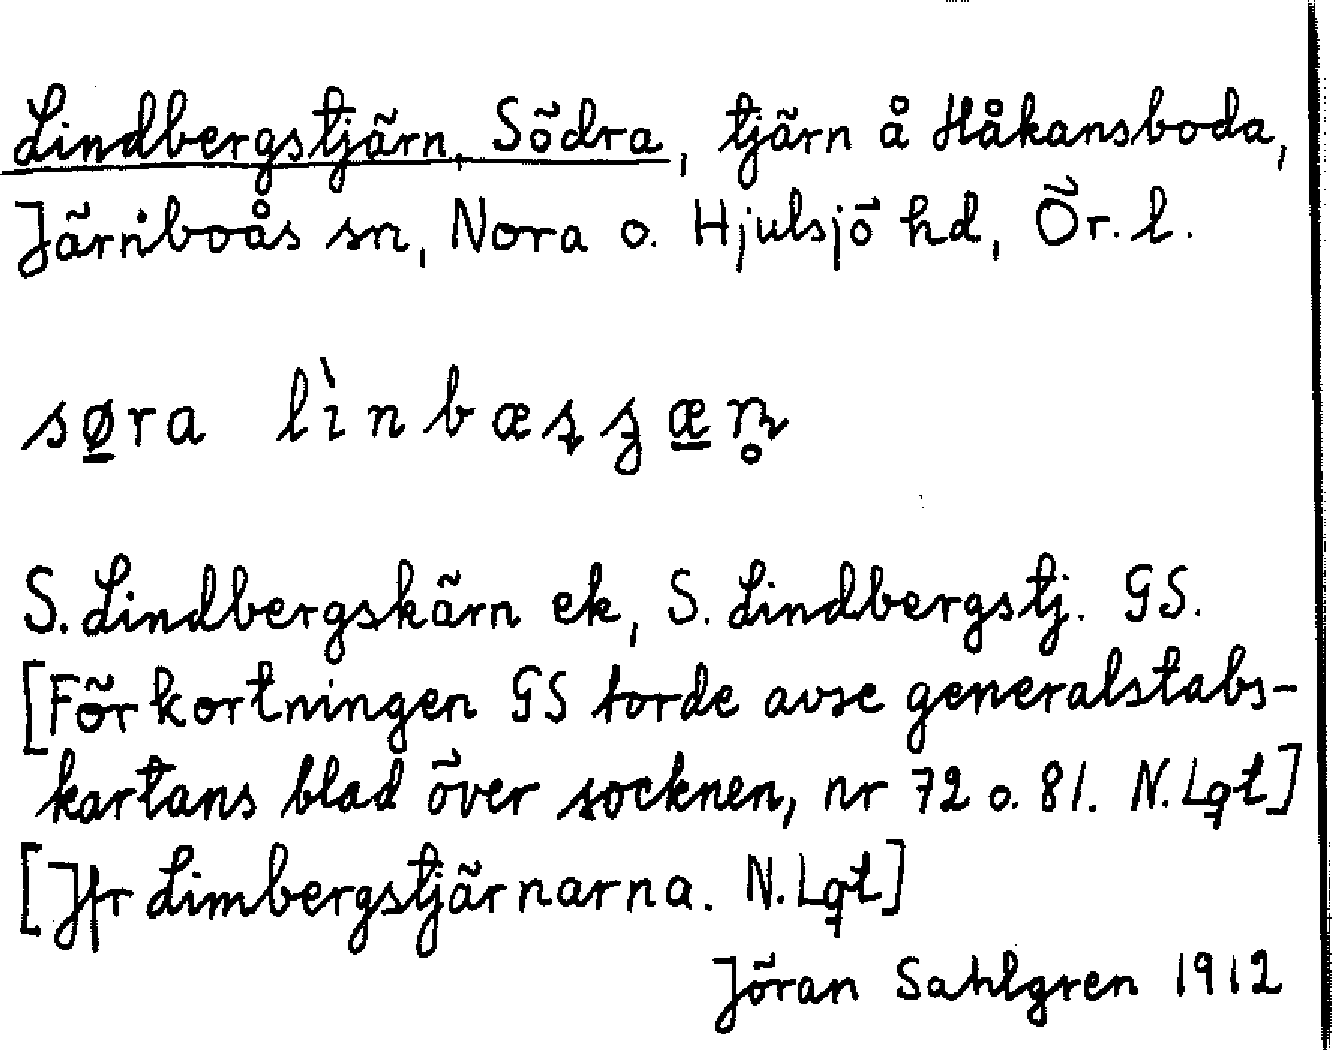 Lindbergstjärn, Södra, tjärn å Håkansboda,
Järnboås sn, Nora o. Hjulsjö hd, Ör. l.
søra
S. Lindbergskärn ek, S. Lindbergstj. GS.
[Förkortningen GS torde avse generalstabs-
kartans blad över socknen, nr 72 o. 81. N. Lqt]
[Jfr Limbergstjärnarna. N. Lqt]
Jöran Sahlgren 1912